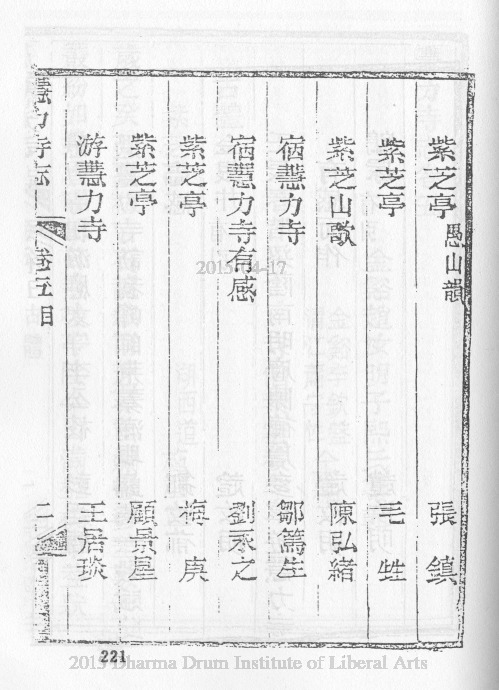 紫芝亭 愚山韻 張鎮
紫芝亭 毛甡
紫芝山歌 陳弘緒
宿慧力寺 鄒篤生
宿慧力寺有感 劉丞之
紫芝亭 梅庚
紫芝亭 顧景星
游慧力寺 王居琰
慧力寺志 卷五目 二
2015-04-17
221
2015 Dharma Drum Institute of Liberal Arts